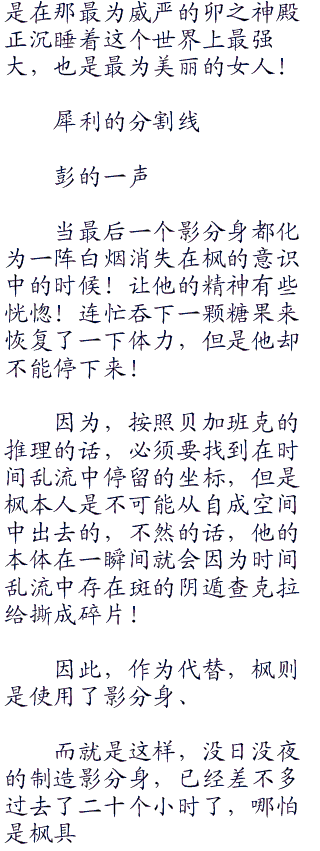 是在那最为威严的卯之神殿
正沉睡着这个世界上最强
大，也是最为美丽的女人！
犀利的分割线
彭的一声
当最后一个影分身都化
为一阵白烟消失在枫的意识
中的时候！让他的精神有些
恍惚！连忙吞下一颗糖果来
恢复了一下体力，但是他却
不能停下来！
因为，按照贝加班克的
推理的话，必须要找到在时
间乱流中停留的坐标，但是
枫本人是不可能从自成空间
中出去的，不然的话，他的
本体在一瞬间就会因为时间
乱流中存在斑的阴遁查克拉
给撕成碎片！
因此，作为代替，枫则
是使用了影分身、
而就是这样，没日没夜
的制造影分身，已经差不多
过去了二十个小时了，哪怕
是枫具